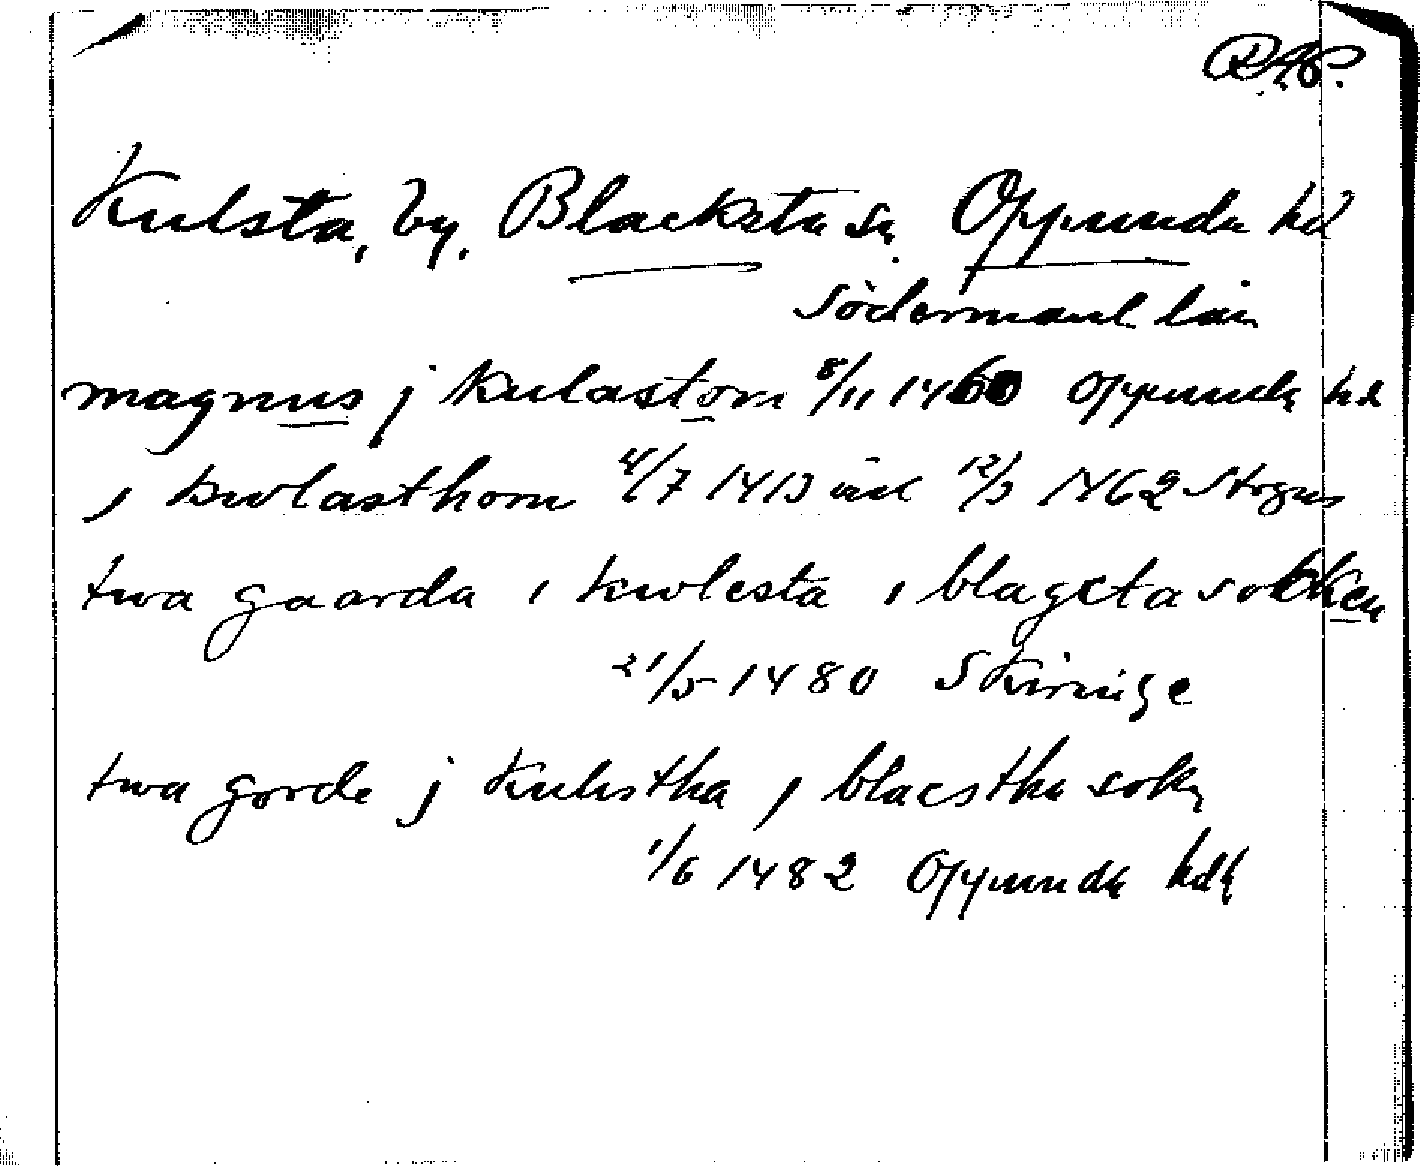 R.A.P.
Kulsta, by, Blacksta sn Oppunda hd
Södermanl. län
magnus j kulastom 8/11 1460 Oppunda hd
i kwlasthom 4/7 1413 12/3 1462
twa gaarda i kwlesta i blagxta sokken
21/5 1480 Skirnige
twa gorde j kulistha j blacstha sokn
1/6 1482 Oppunda hd